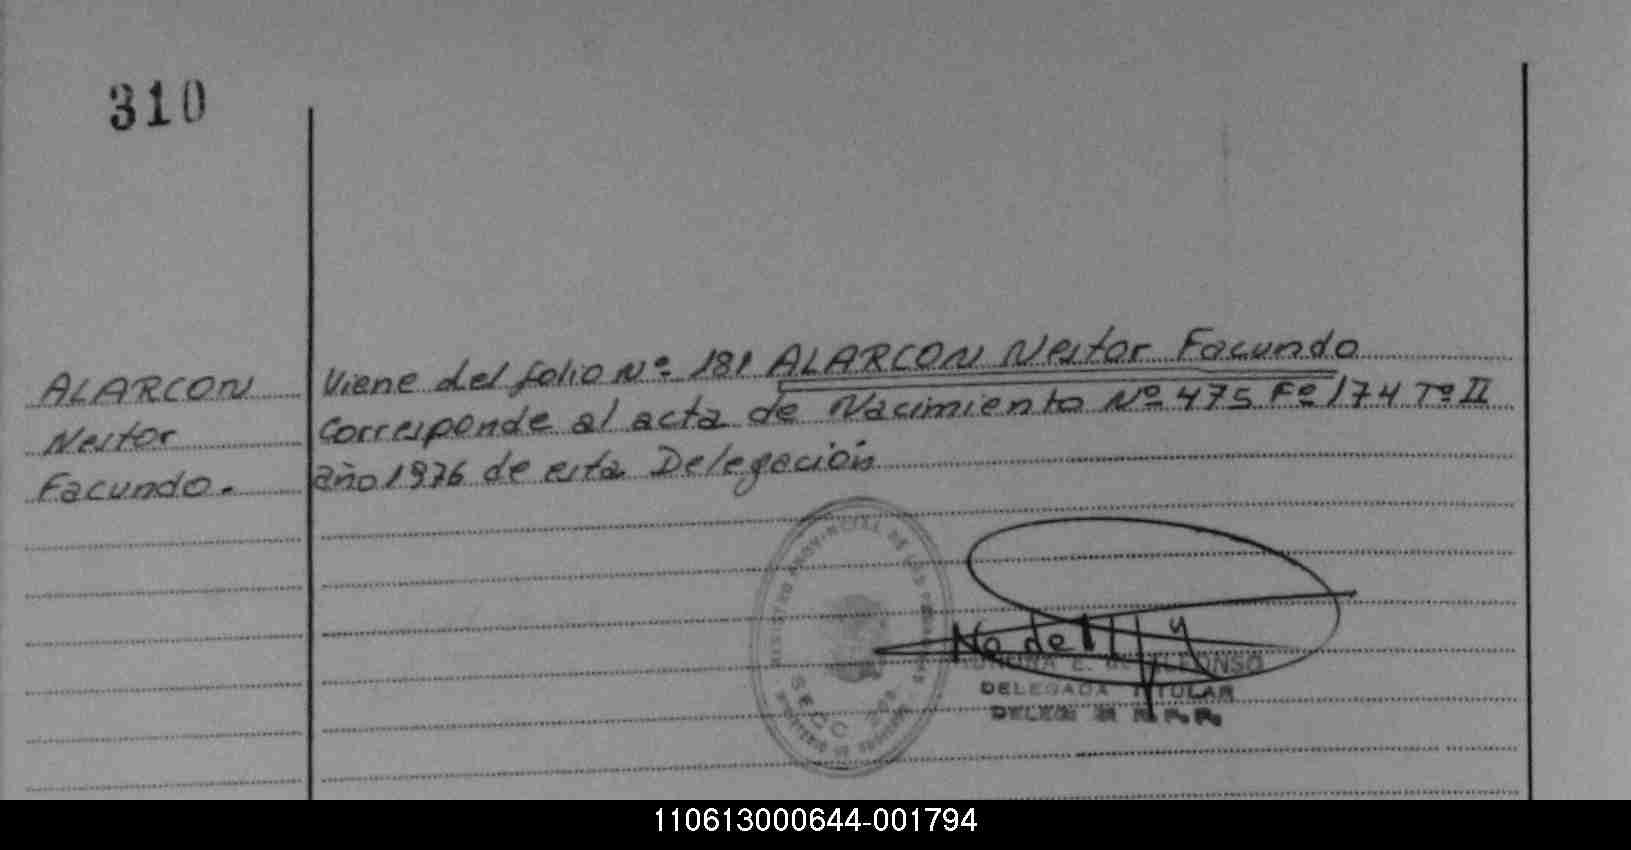 310
ALARCON
Nestor
Facundo.
Viene del folio Nº 181 ALARCON Nestor Facundo
Corresponde al acta de Nacimiento Nº 475 Fº 174 Tº II
año 1976 de esta Delegación
REGISTRO PROVINCIAL DE LAS PERSONAS
SECC
E. de ALFONSO
DELEGADA TITULAR
110613000644-001794